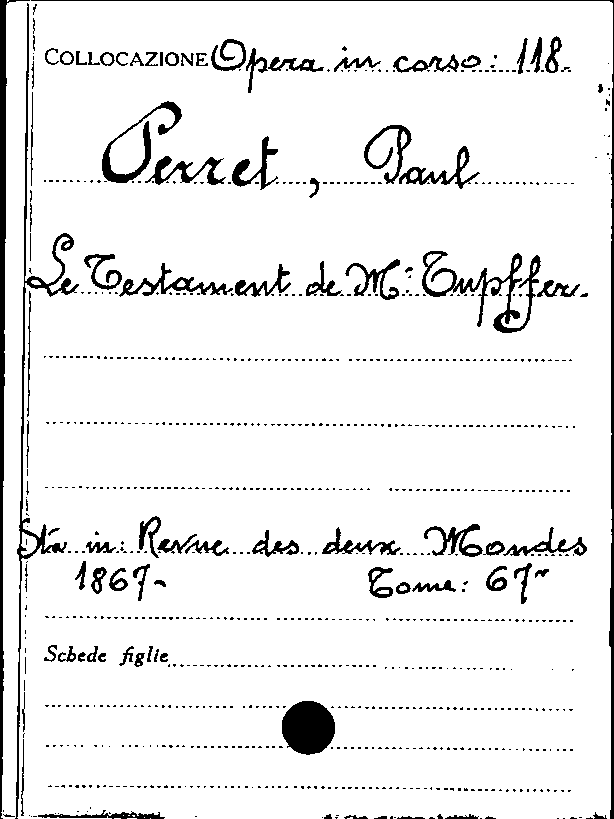 COLLOCAZIONE Opera in corso: 118.
Perret, Paul
Le Testament de Mr Tupffer.
Sta in: Revue des deux Mondes
1867- Tome: 67"
Schede figlie